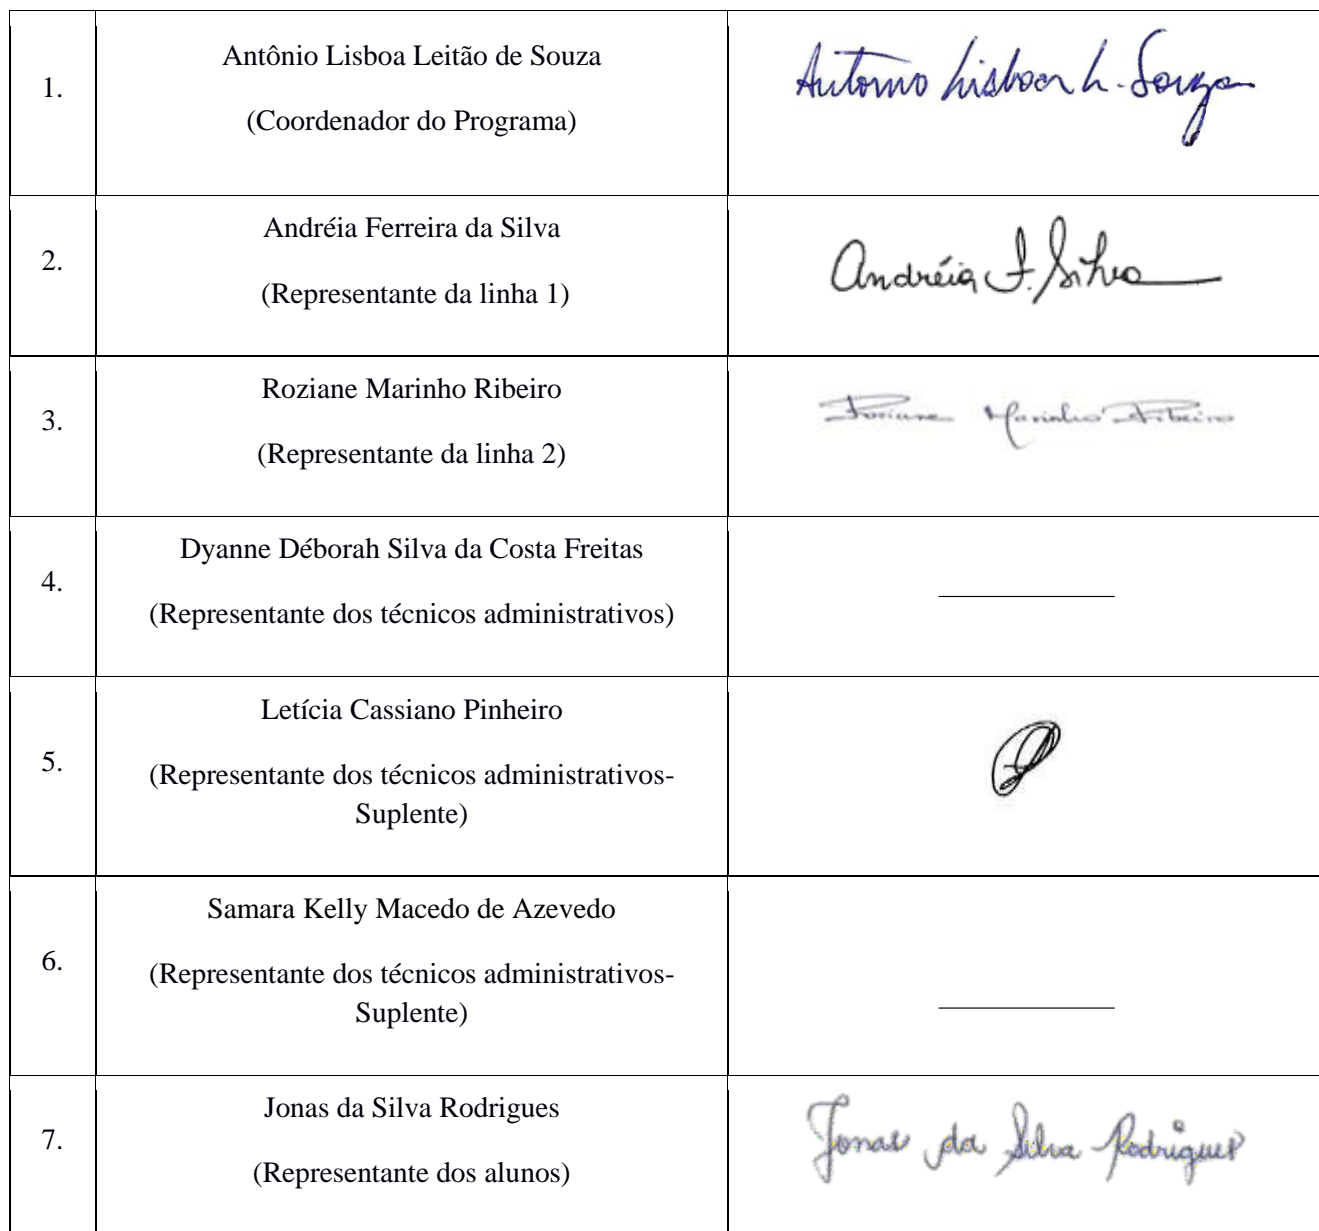 1.
Antônio Lisboa Leitão de Souza
(Coordenador do Programa)
Antonio Lisboa L. Souza
2.
Andréia Ferreira da Silva
(Representante da linha 1)
Andréia F. Silva
3.
Roziane Marinho Ribeiro
(Representante da linha 2)
Roziane Marinho Ribeiro
4.
Dyanne Déborah Silva da Costa Freitas
(Representante dos técnicos administrativos)
5.
Letícia Cassiano Pinheiro
(Representante dos técnicos administrativos-
Suplente)
6.
Samara Kelly Macedo de Azevedo
(Representante dos técnicos administrativos-
Suplente)
7.
Jonas da Silva Rodrigues
(Representante dos alunos)
Jonas da Silva Rodrigues